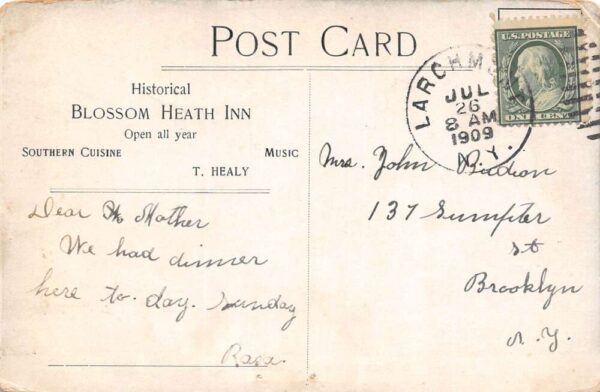 POST CARD
Historical
BLOSSOM HEATH INN
Open all year
SOUTHERN CUISINE MUSIC
T. HEALY
U.S. POSTAGE
ONE CENT
LARCHM
JUL
26
8 AM
1909
N.Y.
Mrs. John
137 Sumpter
st
Brooklyn
N.Y.
Dear Mother
We had dinner
here to-day. Sunday